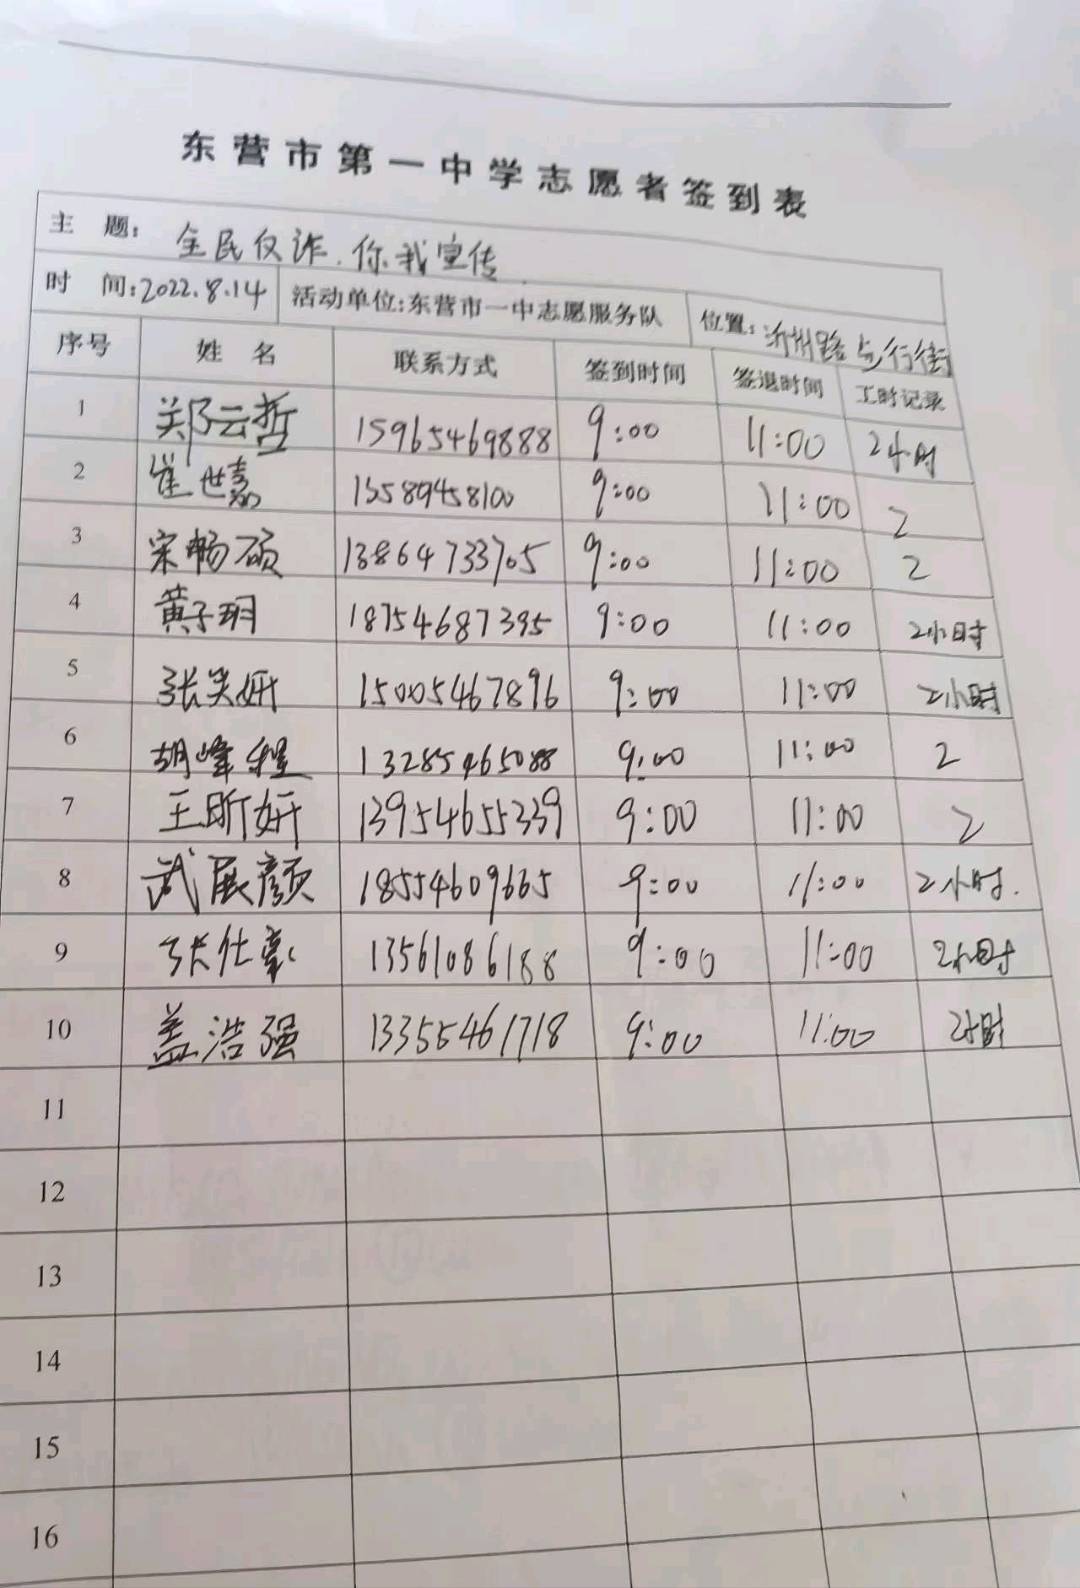 东营市第一中学志愿者签到表
主 题: 全民反诈.你我宣传
时 间:2022.8.14 活动单位:东营市一中志愿服务队 位置:沂州路步行街
序号 姓 名 联系方式 签到时间 签退时间 工时记录
1 郑云哲 15965469888 9:00 11:00 2小时
2 崔世嘉 15589458100 9:00 11:00 2
3 宋畅硕 13864733705 9:00 11:00 2
4 黄子玥 18754687395 9:00 11:00 2小时
5 张笑妍 15005467896 9:00 11:00 2小时
6 胡峰程 13285465088 9:00 11:00 2
7 王昕妍 13954655339 9:00 11:00 2
8 武展颜 18554609665 9:00 11:00 2小时.
9 张仕豪 13561086188 9:00 11:00 2小时
10 盖浩强 13355461718 9:00 11:00 2小时
11
12
13
14
15
16